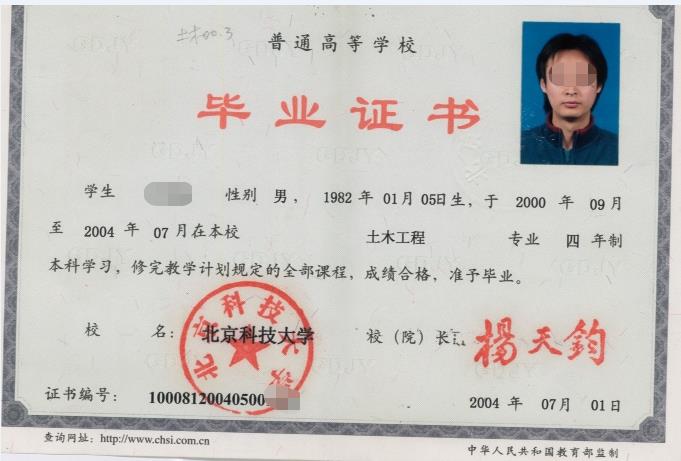 土木00.3
普通高等学校
毕业证书
学生 性别 男，1982 年 01 月 05日生，于 2000 年 09 月
至 2004 年 07 月在本校 土木工程 专业 四 年制
本科学习，修完教学计划规定的全部课程，成绩合格，准予毕业。
校 名： 北京科技大学 校（院）长： 楊天鈞
北京科技大学
证书编号： 10008120040500
2004 年 07 月 01 日
查询网址：http://www.chsi.com.cn
中华人民共和国教育部监制